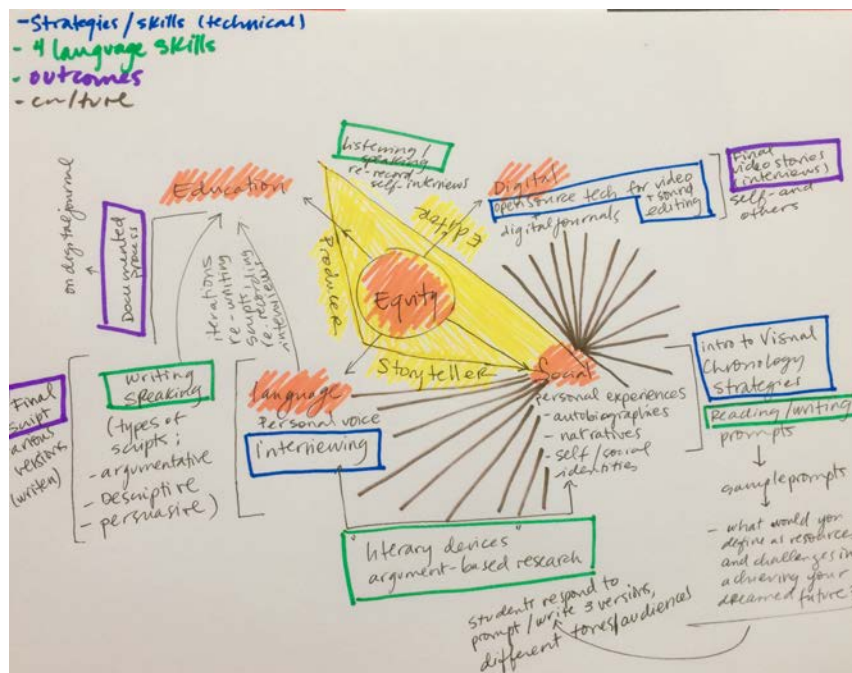 - Strategies/skills (technical)
- 4 language skills
- outcomes
- culture
listening/
speaking
re-record
self-interviews
Education
Digital
open source tech for video
+ sound
editing
digital journals
Final
video stories
(interviews)
self-and
others
on digital journal
Documented
process
Editor
Producer
Storyteller
Equity
iterations
re-writing
scripts/
re-recording
interviews
Final
script
various
versions
(writen)
Writing
Speaking
(types of
scripts:
- argumentative
- Descriptive
- persuasive)
language
Personal voice
interviewing
Social
personal experiences
- autobiographies
- narratives
- self/social
identities
intro to Visual
Chronology
Strategies
Reading/writing
prompts
sample prompts
- what would you
define as resources
and challenges in
achieving your
dreamed future?
"literary devices"
argument-based research
Students respond to
prompt/write 3 versions,
different tones/audiences